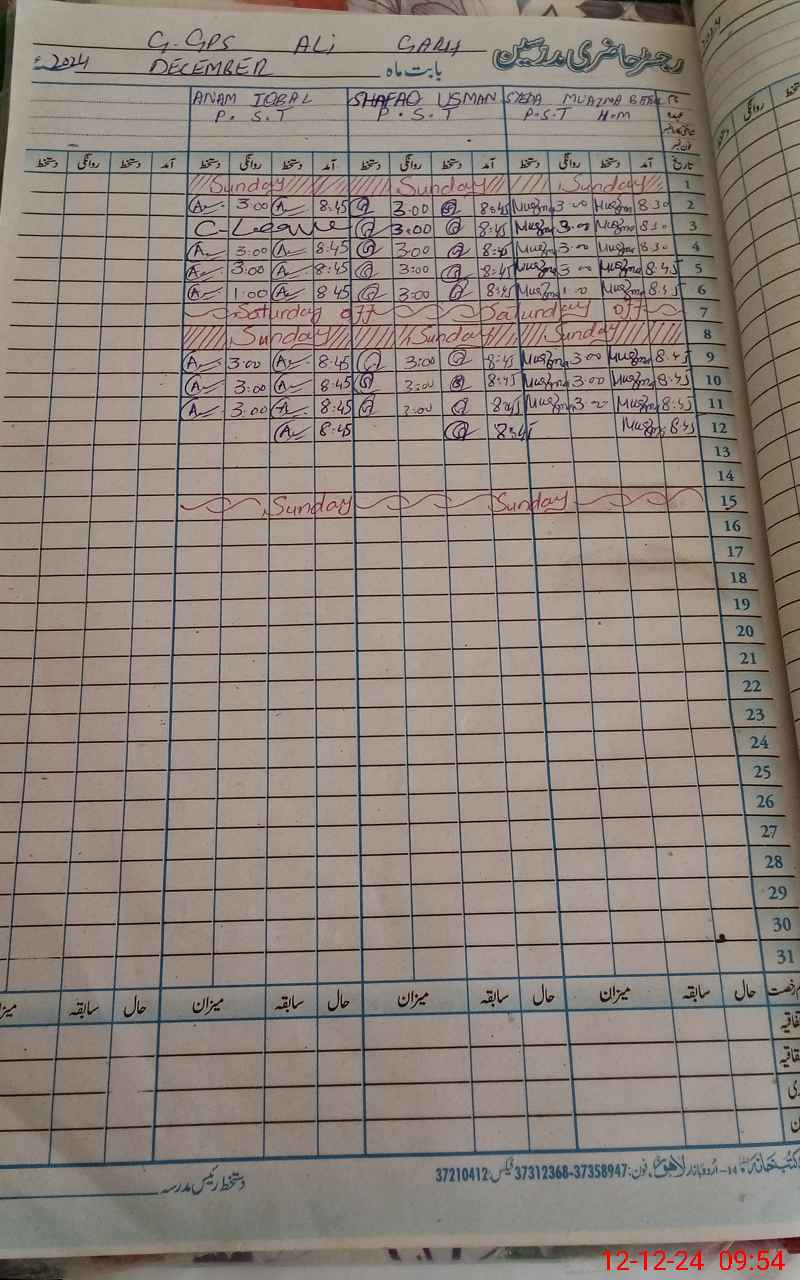 G.GPS ALI GARH رجسٹر حاضری مدرسین
DECEMBER بابت ماہ 2024ء
ANAM IQBAL SHAFAQ USMAN MUAZMA نام
P.S.T P.S.T P.S.T H.M عہدہ
دستخط روانگی دستخط آمد دستخط روانگی دستخط آمد دستخط روانگی دستخط آمد دستخط روانگی دستخط آمد تاریخ
Sunday Sunday Sunday 1
A 3:00 A 8:45 3:00 8:45 Muazma 3:00 Muazma 8:30 2
C-Leave 3:00 8:45 Muazma 3:00 Muazma 8:30 3
A 3:00 A 8:45 3:00 8:45 Muazma 3:00 Muazma 8:30 4
A 3:00 A 8:45 3:00 8:45 Muazma 3:00 Muazma 8:45 5
A 1:00 A 8:45 3:00 8:45 Muazma 1:00 Muazma 8:45 6
Saturday off Saturday off 7
Sunday Sunday Sunday 8
A 3:00 A 8:45 3:00 8:45 Muazma 3:00 Muazma 8:45 9
A 3:00 A 8:45 3:00 8:45 Muazma 3:00 Muazma 8:45 10
A 3:00 A 8:45 3:00 8:45 Muazma 3:00 Muazma 8:45 11
A 8:45 8:45 Muazma 8:45 12
13
14
Sunday Sunday 15
16
17
18
19
20
21
22
23
24
25
26
27
28
29
30
31
حال سابقہ میزان حال سابقہ میزان حال سابقہ میزان حال سابقہ
اردو بازار لاہور فون: 37358947-37312368 فیکس: 37210412
دستخط رئیس مدرسہ
12-12-24 09:54